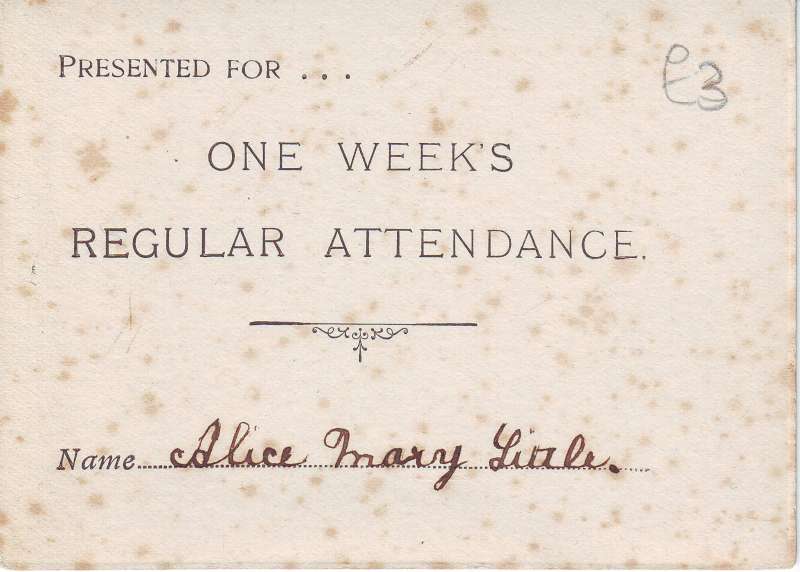 PRESENTED FOR . . .
£3
ONE WEEK'S
REGULAR ATTENDANCE.
Name Alice Mary Little.